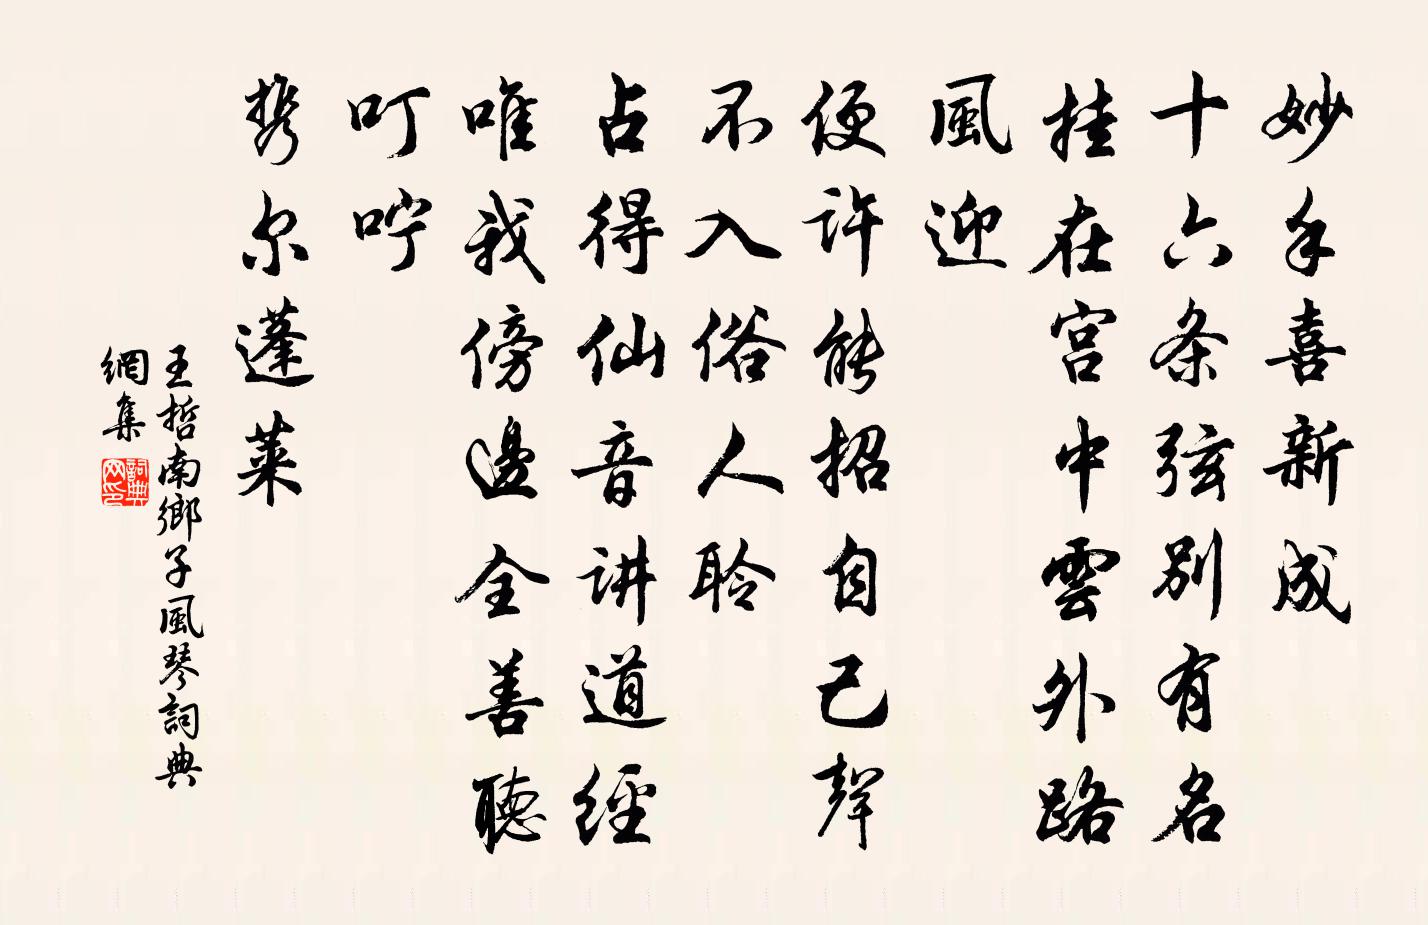 妙手喜新成
十六条弦别有名
挂在宫中雲外路
風迎
便许能招自己聲
不入俗人聆
占得仙音讲道經
唯我傍邊全善聽
叮咛
携尔蓬莱
王哲南鄉子風琴詞典
網集
詞典
网印